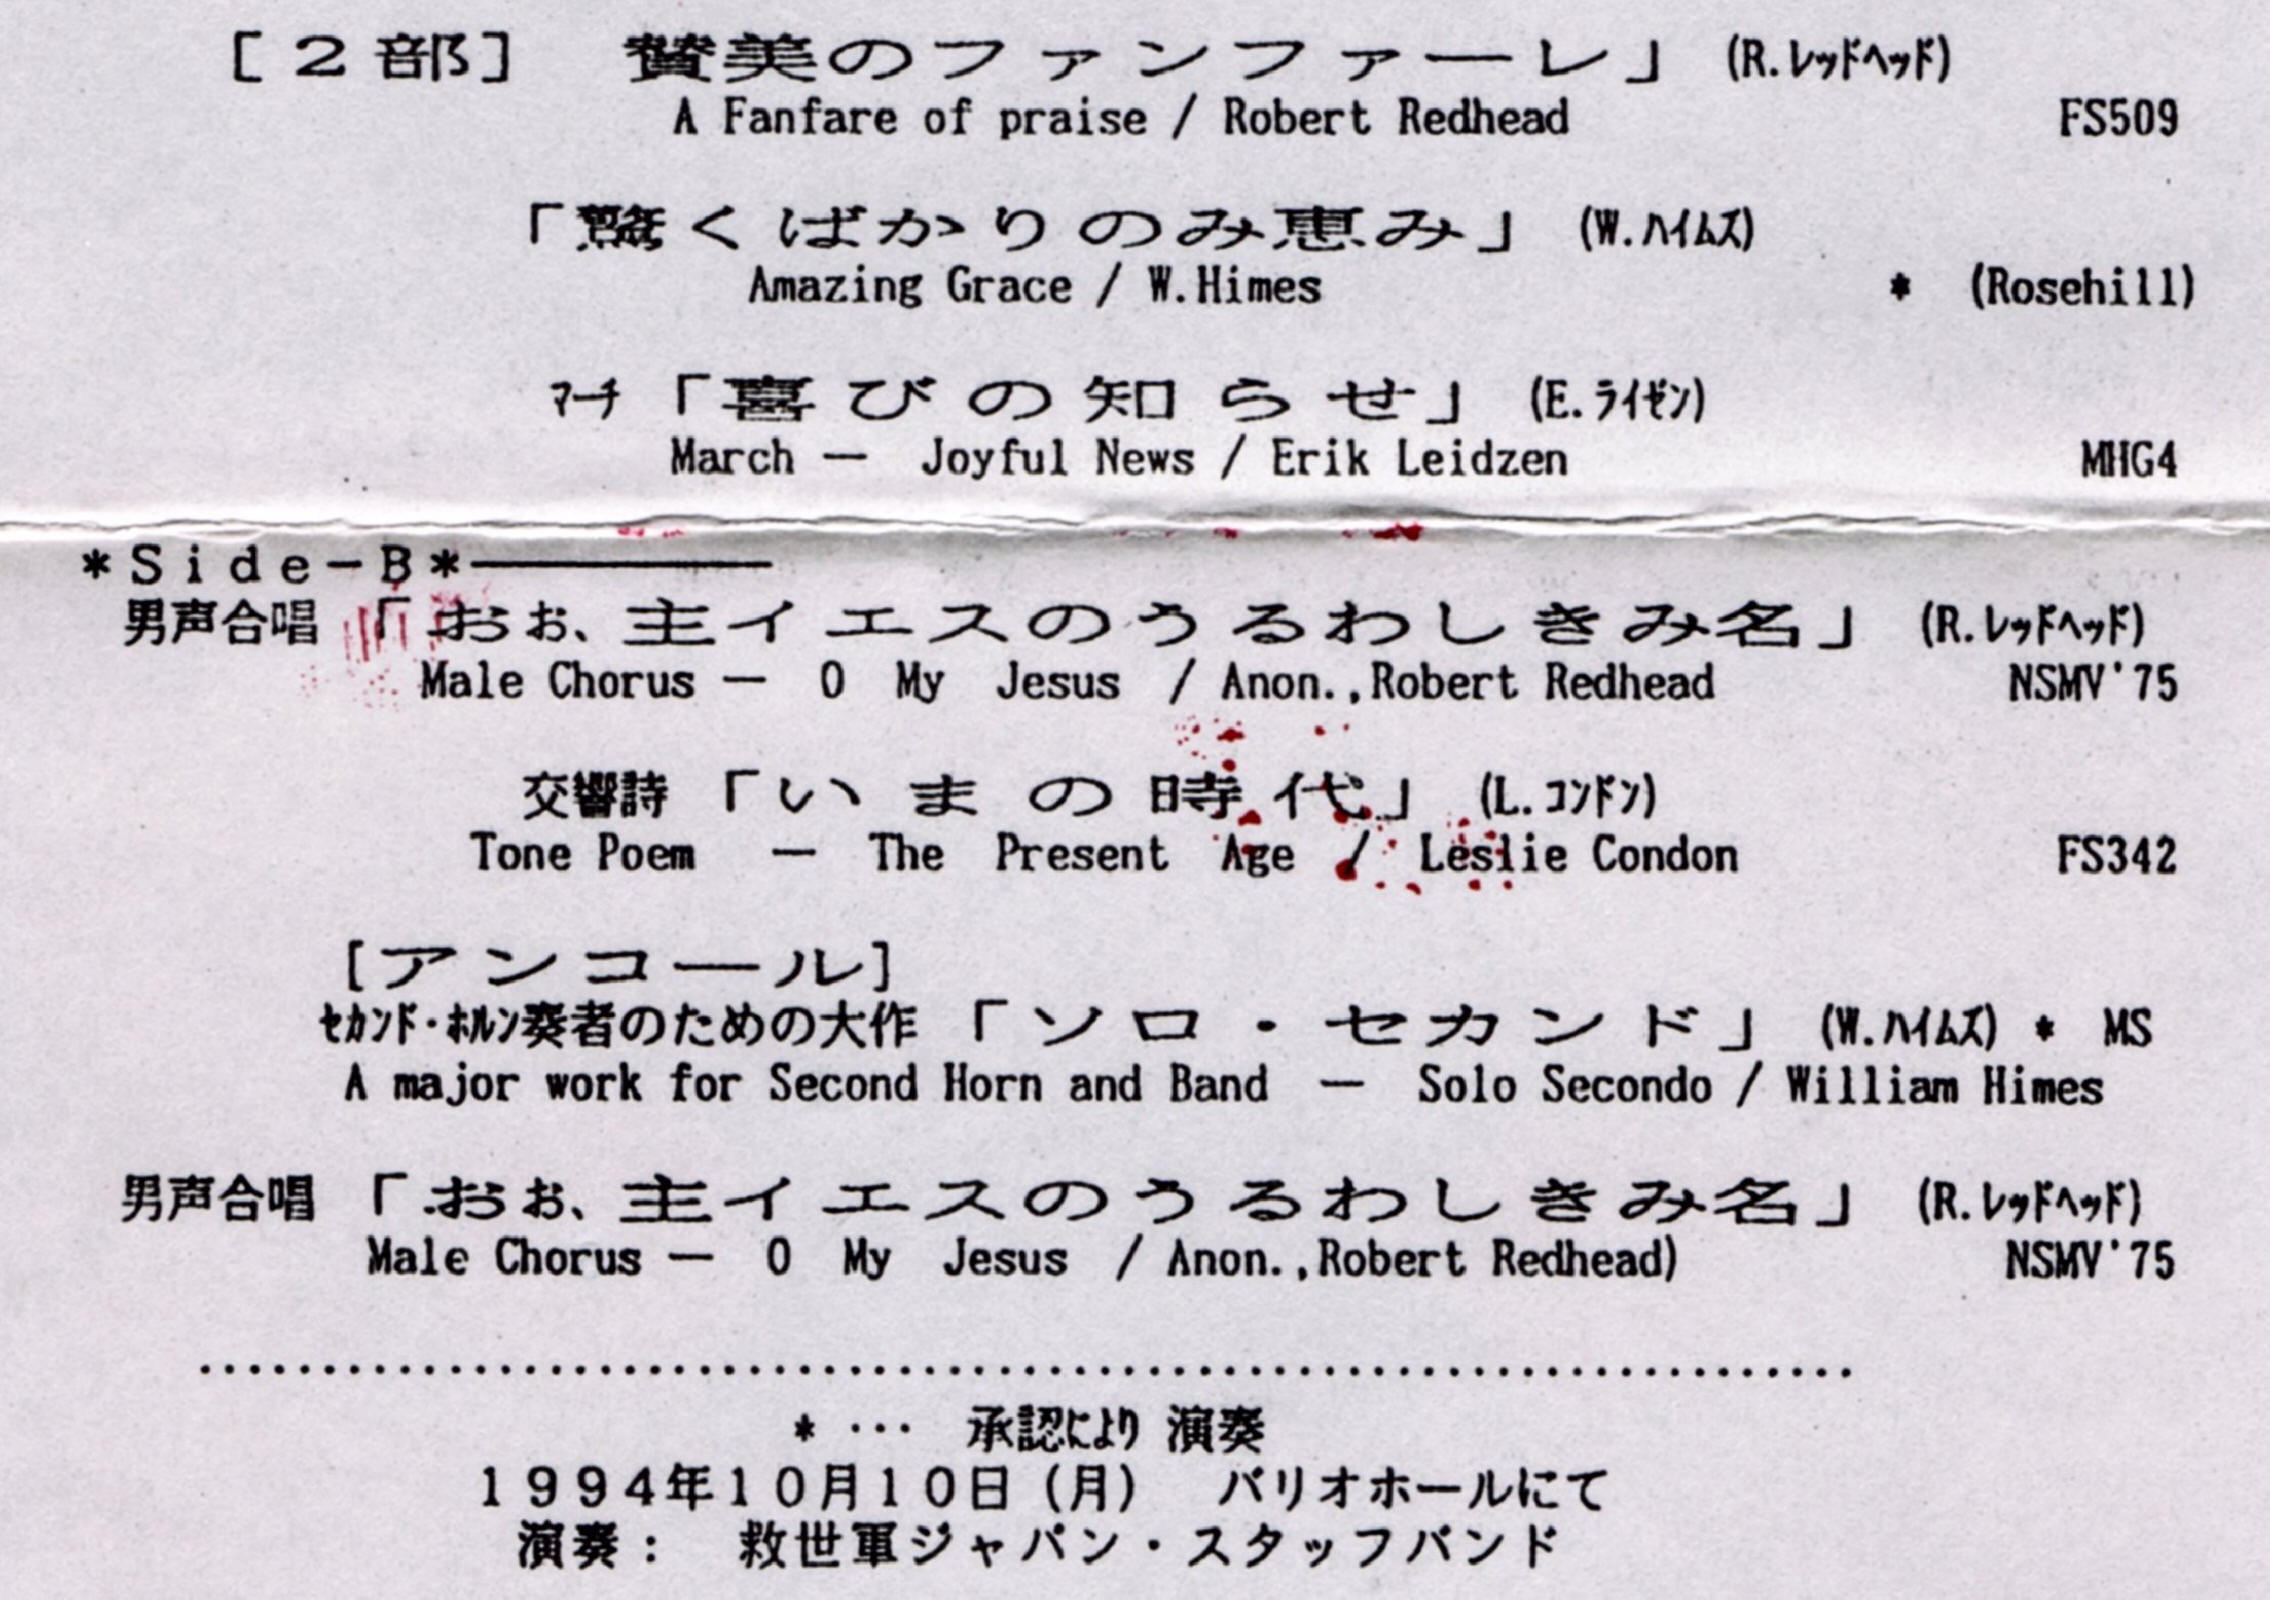 ［２部］　賛美のファンファーレ」 (R.ﾚｯﾄﾞﾍｯﾄﾞ)
A Fanfare of praise / Robert Redhead FS509
「驚くばかりのみ恵み」 (W.ﾊｲﾑｽﾞ)
Amazing Grace / W.Himes * (Rosehill)
ﾏｰﾁ 「喜びの知らせ」 (E.ﾗｲｾﾞﾝ)
March ー Joyful News / Erik Leidzen MHG4
*Ｓｉｄｅ－Ｂ*――――――
男声合唱 「おぉ、主イエスのうるわしきみ名」 (R.ﾚｯﾄﾞﾍｯﾄﾞ)
Male Chorus ー O My Jesus / Anon.,Robert Redhead NSMV'75
交響詩 「いまの時代」 (L.ｺﾝﾄﾞﾝ)
Tone Poem ー The Present Age / Leslie Condon FS342
［アンコール］
ｾｶﾝﾄﾞ･ﾎﾙﾝ奏者のための大作 「ソロ・セカンド」 (W.ﾊｲﾑｽﾞ) * MS
A major work for Second Horn and Band ー Solo Secondo / William Himes
男声合唱 「おぉ、主イエスのうるわしきみ名」 (R.ﾚｯﾄﾞﾍｯﾄﾞ)
Male Chorus ー O My Jesus / Anon.,Robert Redhead) NSMV'75
* … 承認により 演奏
１９９４年１０月１０日（月）　バリオホールにて
演奏：　救世軍ジャパン・スタッフバンド